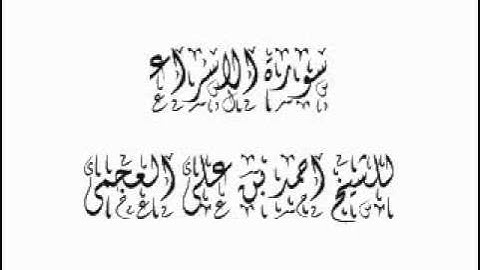 سورة الاسراء
للشيخ احمد بن على العجمى